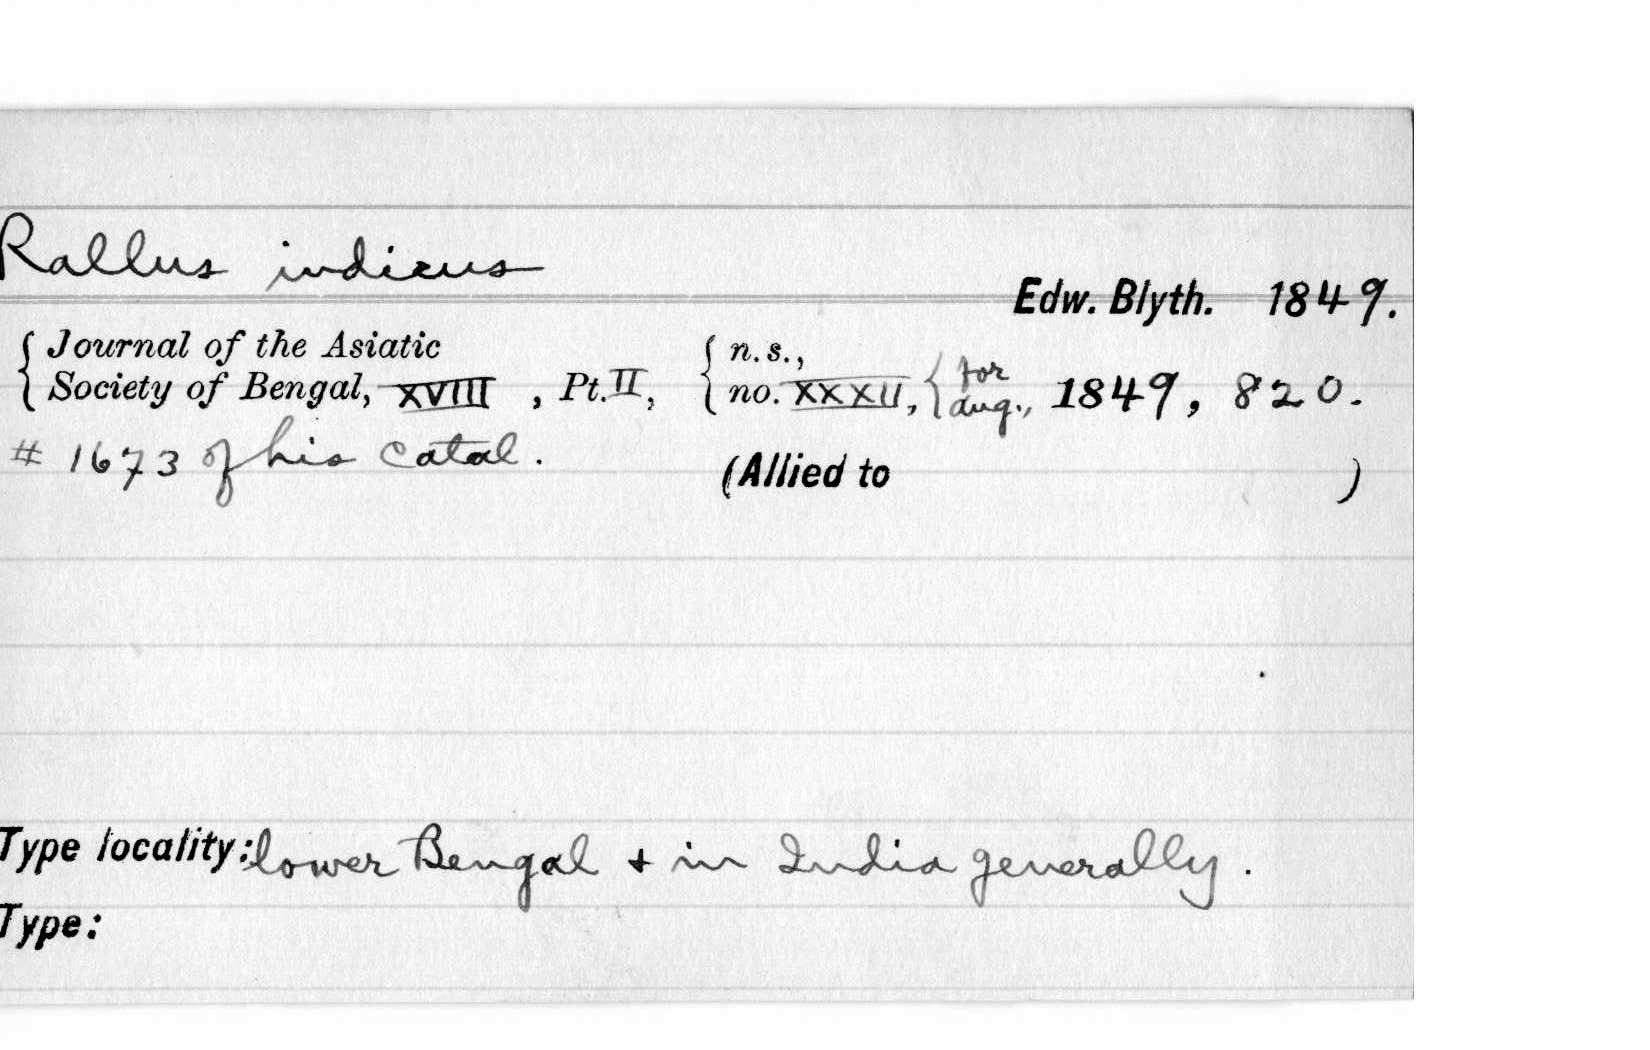 Rallus indicus
Edw. Blyth. 1849.
{ Journal of the Asiatic { n.s., { for
Society of Bengal, XVIII, Pt. II, no. XXXII, aug., 1849, 820.
# 1673 of his Catal.
(Allied to )
Type locality: lower Bengal + in India generally.
Type: